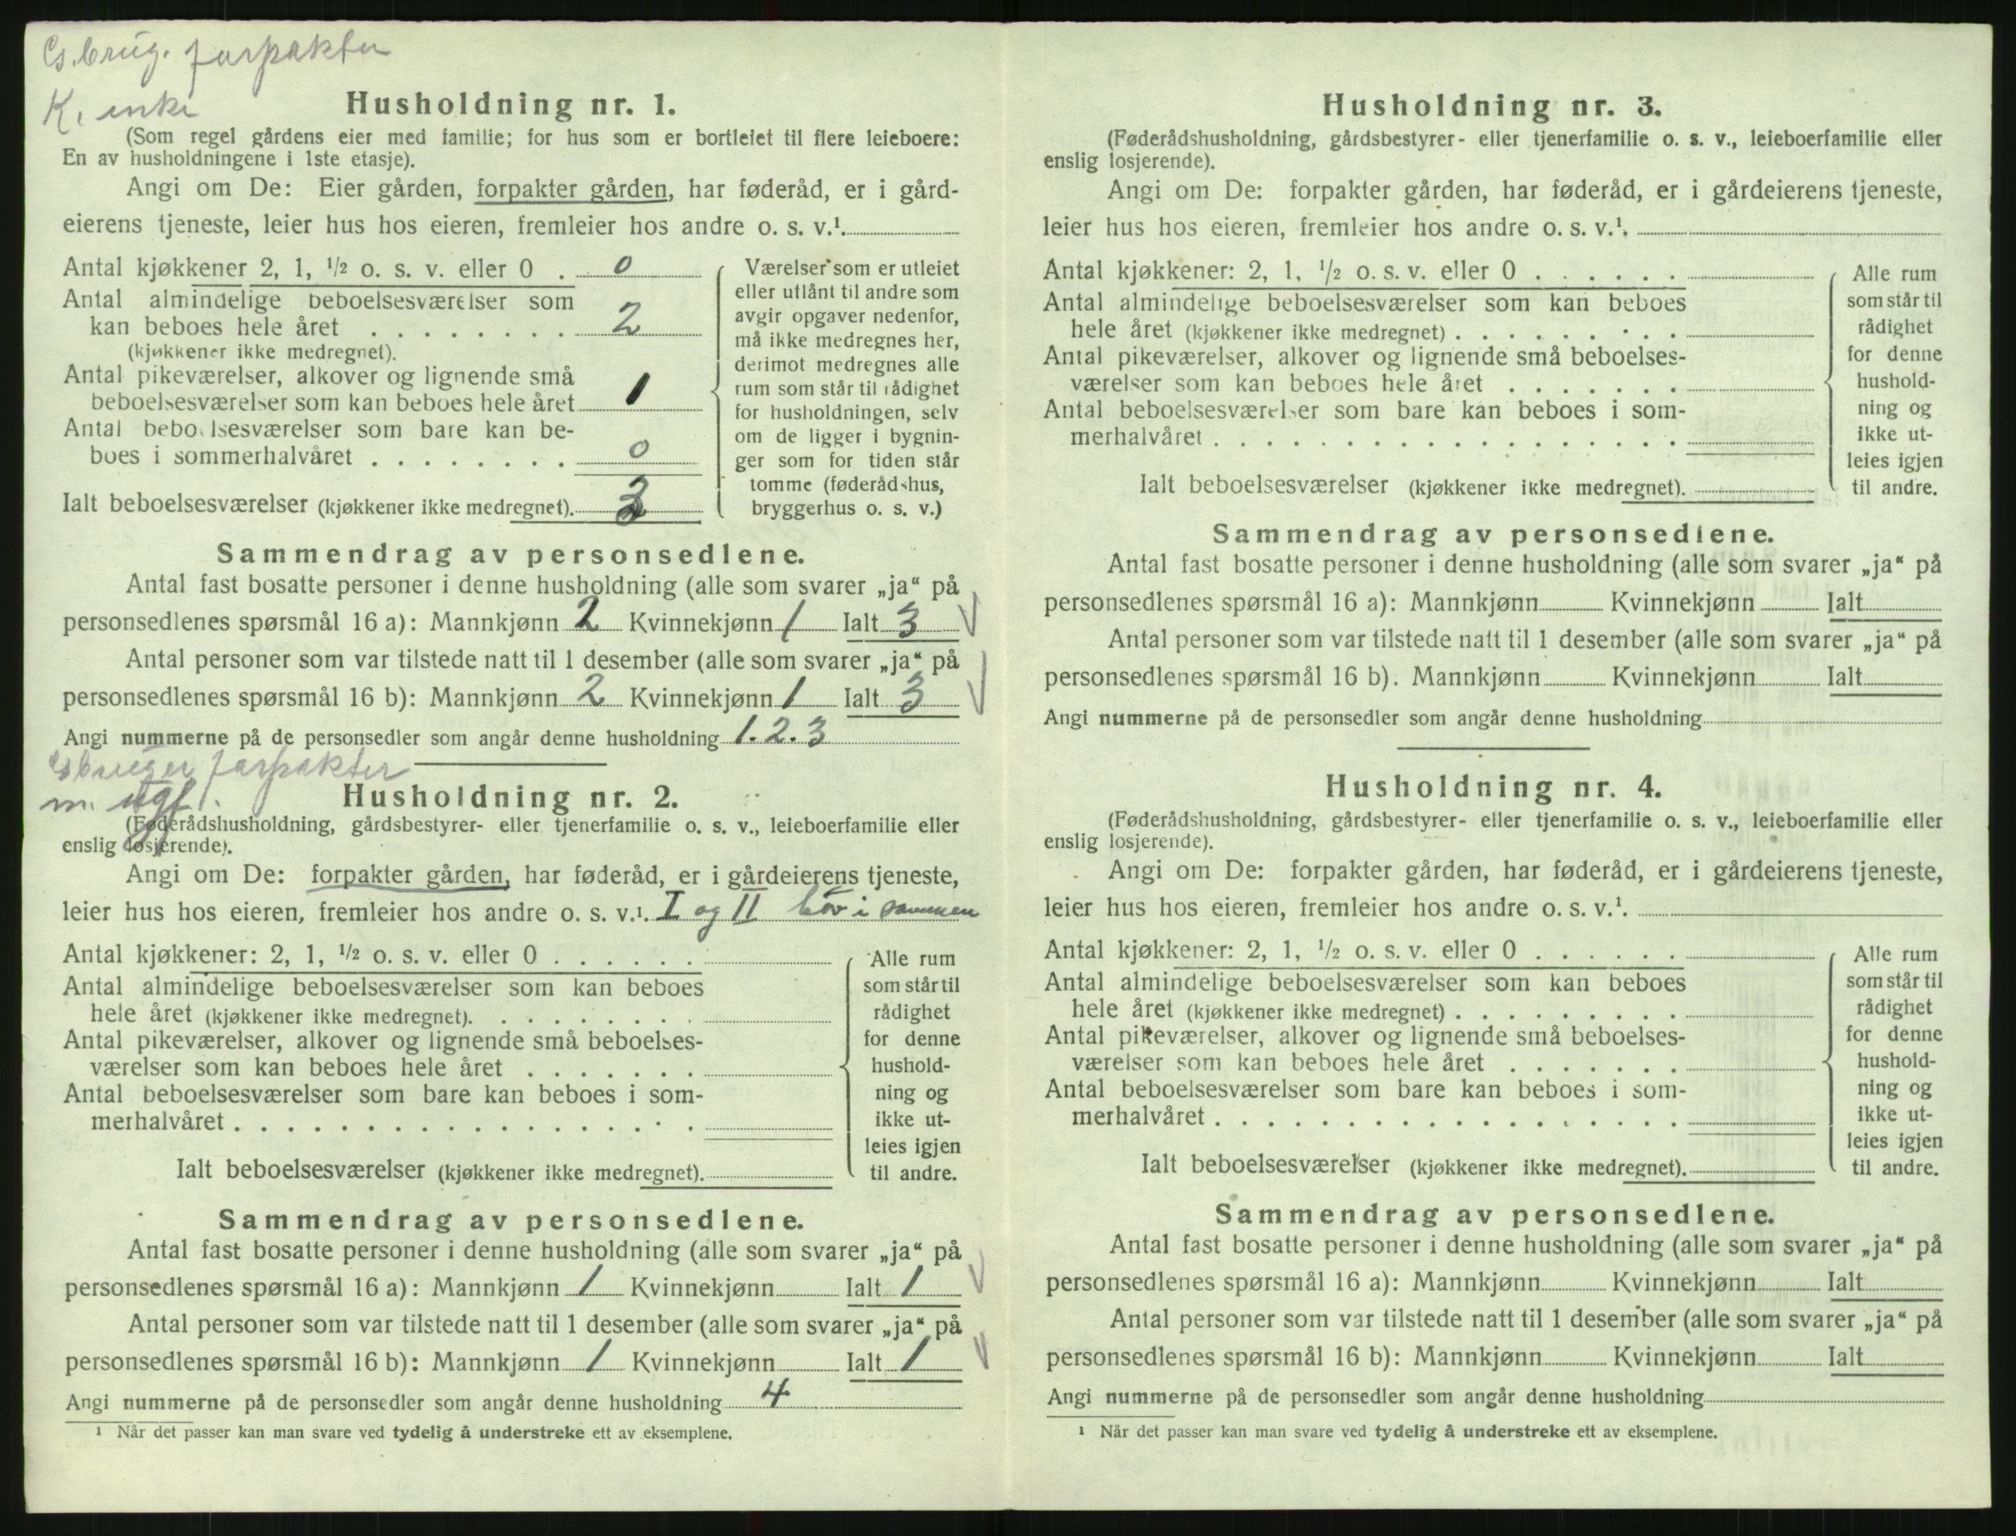 Gbrug. forpakter
K. enke
Husholdning nr. 1.
(Som regel gårdens eier med familie; for hus som er bortleiet til flere leieboere:
En av husholdningene i 1ste etasje).
Angi om De: Eier gården, forpakter gården, har føderåd, er i gård-
eierens tjeneste, leier hus hos eieren, fremleier hos andre o. s. v.¹
Antal kjøkkener 2, 1, ½ o. s. v. eller 0 . 0
Antal almindelige beboelsesværelser som
kan beboes hele året . . . . . . . . 2
(kjøkkener ikke medregnet).
Antal pikeværelser, alkover og lignende små
beboelsesværelser som kan beboes hele året 1
Antal beboelsesværelser som bare kan be-
boes i sommerhalvåret . . . . . . . . 0
Ialt beboelsesværelser (kjøkkener ikke medregnet). 3
Værelser som er utleiet
eller utlånt til andre som
avgir opgaver nedenfor,
må ikke medregnes her,
derimot medregnes alle
rum som står til rådighet
for husholdningen, selv
om de ligger i bygnin-
ger som for tiden står
tomme (føderådshus,
bryggerhus o. s. v.)
Sammendrag av personsedlene.
Antal fast bosatte personer i denne husholdning (alle som svarer „ja“ på
personsedlenes spørsmål 16 a): Mannkjønn 2 Kvinnekjønn 1 Ialt 3
Antal personer som var tilstede natt til 1 desember (alle som svarer „ja“ på
personsedlenes spørsmål 16 b): Mannkjønn 2 Kvinnekjønn 1 Ialt 3
Angi nummerne på de personsedler som angår denne husholdning 1.2.3
Gbruger forpakter
m. ugf.
Husholdning nr. 2.
(Føderådshusholdning, gårdsbestyrer- eller tjenerfamilie o. s. v., leieboerfamilie eller
enslig losjerende).
Angi om De: forpakter gården, har føderåd, er i gårdeierens tjeneste,
leier hus hos eieren, fremleier hos andre o. s. v.¹. I og II bor i sammen
Antal kjøkkener: 2, 1, ½ o. s. v. eller 0 . . . . . .
Antal almindelige beboelsesværelser som kan beboes
hele året (kjøkkener ikke medregnet). . . . . . . . .
Antal pikeværelser, alkover og lignende små beboelses-
værelser som kan beboes hele året . . . . . . .
Antal beboelsesværelser som bare kan beboes i som-
merhalvåret . . . . . . . . . . . . . . . . . .
Ialt beboelsesværelser (kjøkkener ikke medregnet).
Alle rum
som står til
rådighet
for denne
hushold-
ning og
ikke ut-
leies igjen
til andre.
Sammendrag av personsedlene.
Antal fast bosatte personer i denne husholdning (alle som svarer „ja“ på
personsedlenes spørsmål 16 a): Mannkjønn 1 Kvinnekjønn Ialt 1
Antal personer som var tilstede natt til 1 desember (alle som svarer „ja“ på
personsedlenes spørsmål 16 b): Mannkjønn 1 Kvinnekjønn Ialt 1
Angi nummerne på de personsedler som angår denne husholdning 4
¹ Når det passer kan man svare ved tydelig å understreke ett av eksemplene.
Husholdning nr. 3.
(Føderådshusholdning, gårdsbestyrer- eller tjenerfamilie o. s. v., leieboerfamilie eller
enslig losjerende).
Angi om De: forpakter gården, har føderåd, er i gårdeierens tjeneste,
leier hus hos eieren, fremleier hos andre o. s. v.¹.
Antal kjøkkener: 2, 1, ½ o. s. v. eller 0 . . . . . .
Antal almindelige beboelsesværelser som kan beboes
hele året (kjøkkener ikke medregnet) . . . . . . . . .
Antal pikeværelser, alkover og lignende små beboelses-
værelser som kan beboes hele året . . . . . . .
Antal beboelsesværelser som bare kan beboes i som-
merhalvåret . . . . . . . . . . . . . . . . . .
Ialt beboelsesværelser (kjøkkener ikke medregnet).
Alle rum
som står til
rådighet
for denne
hushold-
ning og
ikke ut-
leies igjen
til andre.
Sammendrag av personsedlene.
Antal fast bosatte personer i denne husholdning (alle som svarer „ja“ på
personsedlenes spørsmål 16 a): Mannkjønn Kvinnekjønn Ialt
Antal personer som var tilstede natt til 1 desember (alle som svarer „ja“ på
personsedlenes spørsmål 16 b). Mannkjønn Kvinnekjønn Ialt
Angi nummerne på de personsedler som angår denne husholdning
Husholdning nr. 4.
(Føderådshusholdning, gårdsbestyrer- eller tjenerfamilie o. s. v., leieboerfamilie eller
enslig losjerende).
Angi om De: forpakter gården, har føderåd, er i gårdeierens tjeneste,
leier hus hos eieren, fremleier hos andre o. s. v.¹.
Antal kjøkkener: 2, 1, ½ o. s. v. eller 0 . . . . . .
Antal almindelige beboelsesværelser som kan beboes
hele året (kjøkkener ikke medregnet) . . . . . . . . .
Antal pikeværelser, alkover og lignende små beboelses-
værelser som kan beboes hele året . . . . . . .
Antal beboelsesværelser som bare kan beboes i som-
merhalvåret . . . . . . . . . . . . . . . . . .
Ialt beboelsesværelser (kjøkkener ikke medregnet).
Alle rum
som står til
rådighet
for denne
hushold-
ning og
ikke ut-
leies igjen
til andre.
Sammendrag av personsedlene.
Antal fast bosatte personer i denne husholdning (alle som svarer „ja“ på
personsedlenes spørsmål 16 a): Mannkjønn Kvinnekjønn Ialt
Antal personer som var tilstede natt til 1 desember (alle som svarer „ja“ på
personsedlenes spørsmål 16 b): Mannkjønn Kvinnekjønn Ialt
Angi nummerne på de personsedler som angår denne husholdning
¹ Når det passer kan man svare ved tydelig å understreke ett av eksemplene.